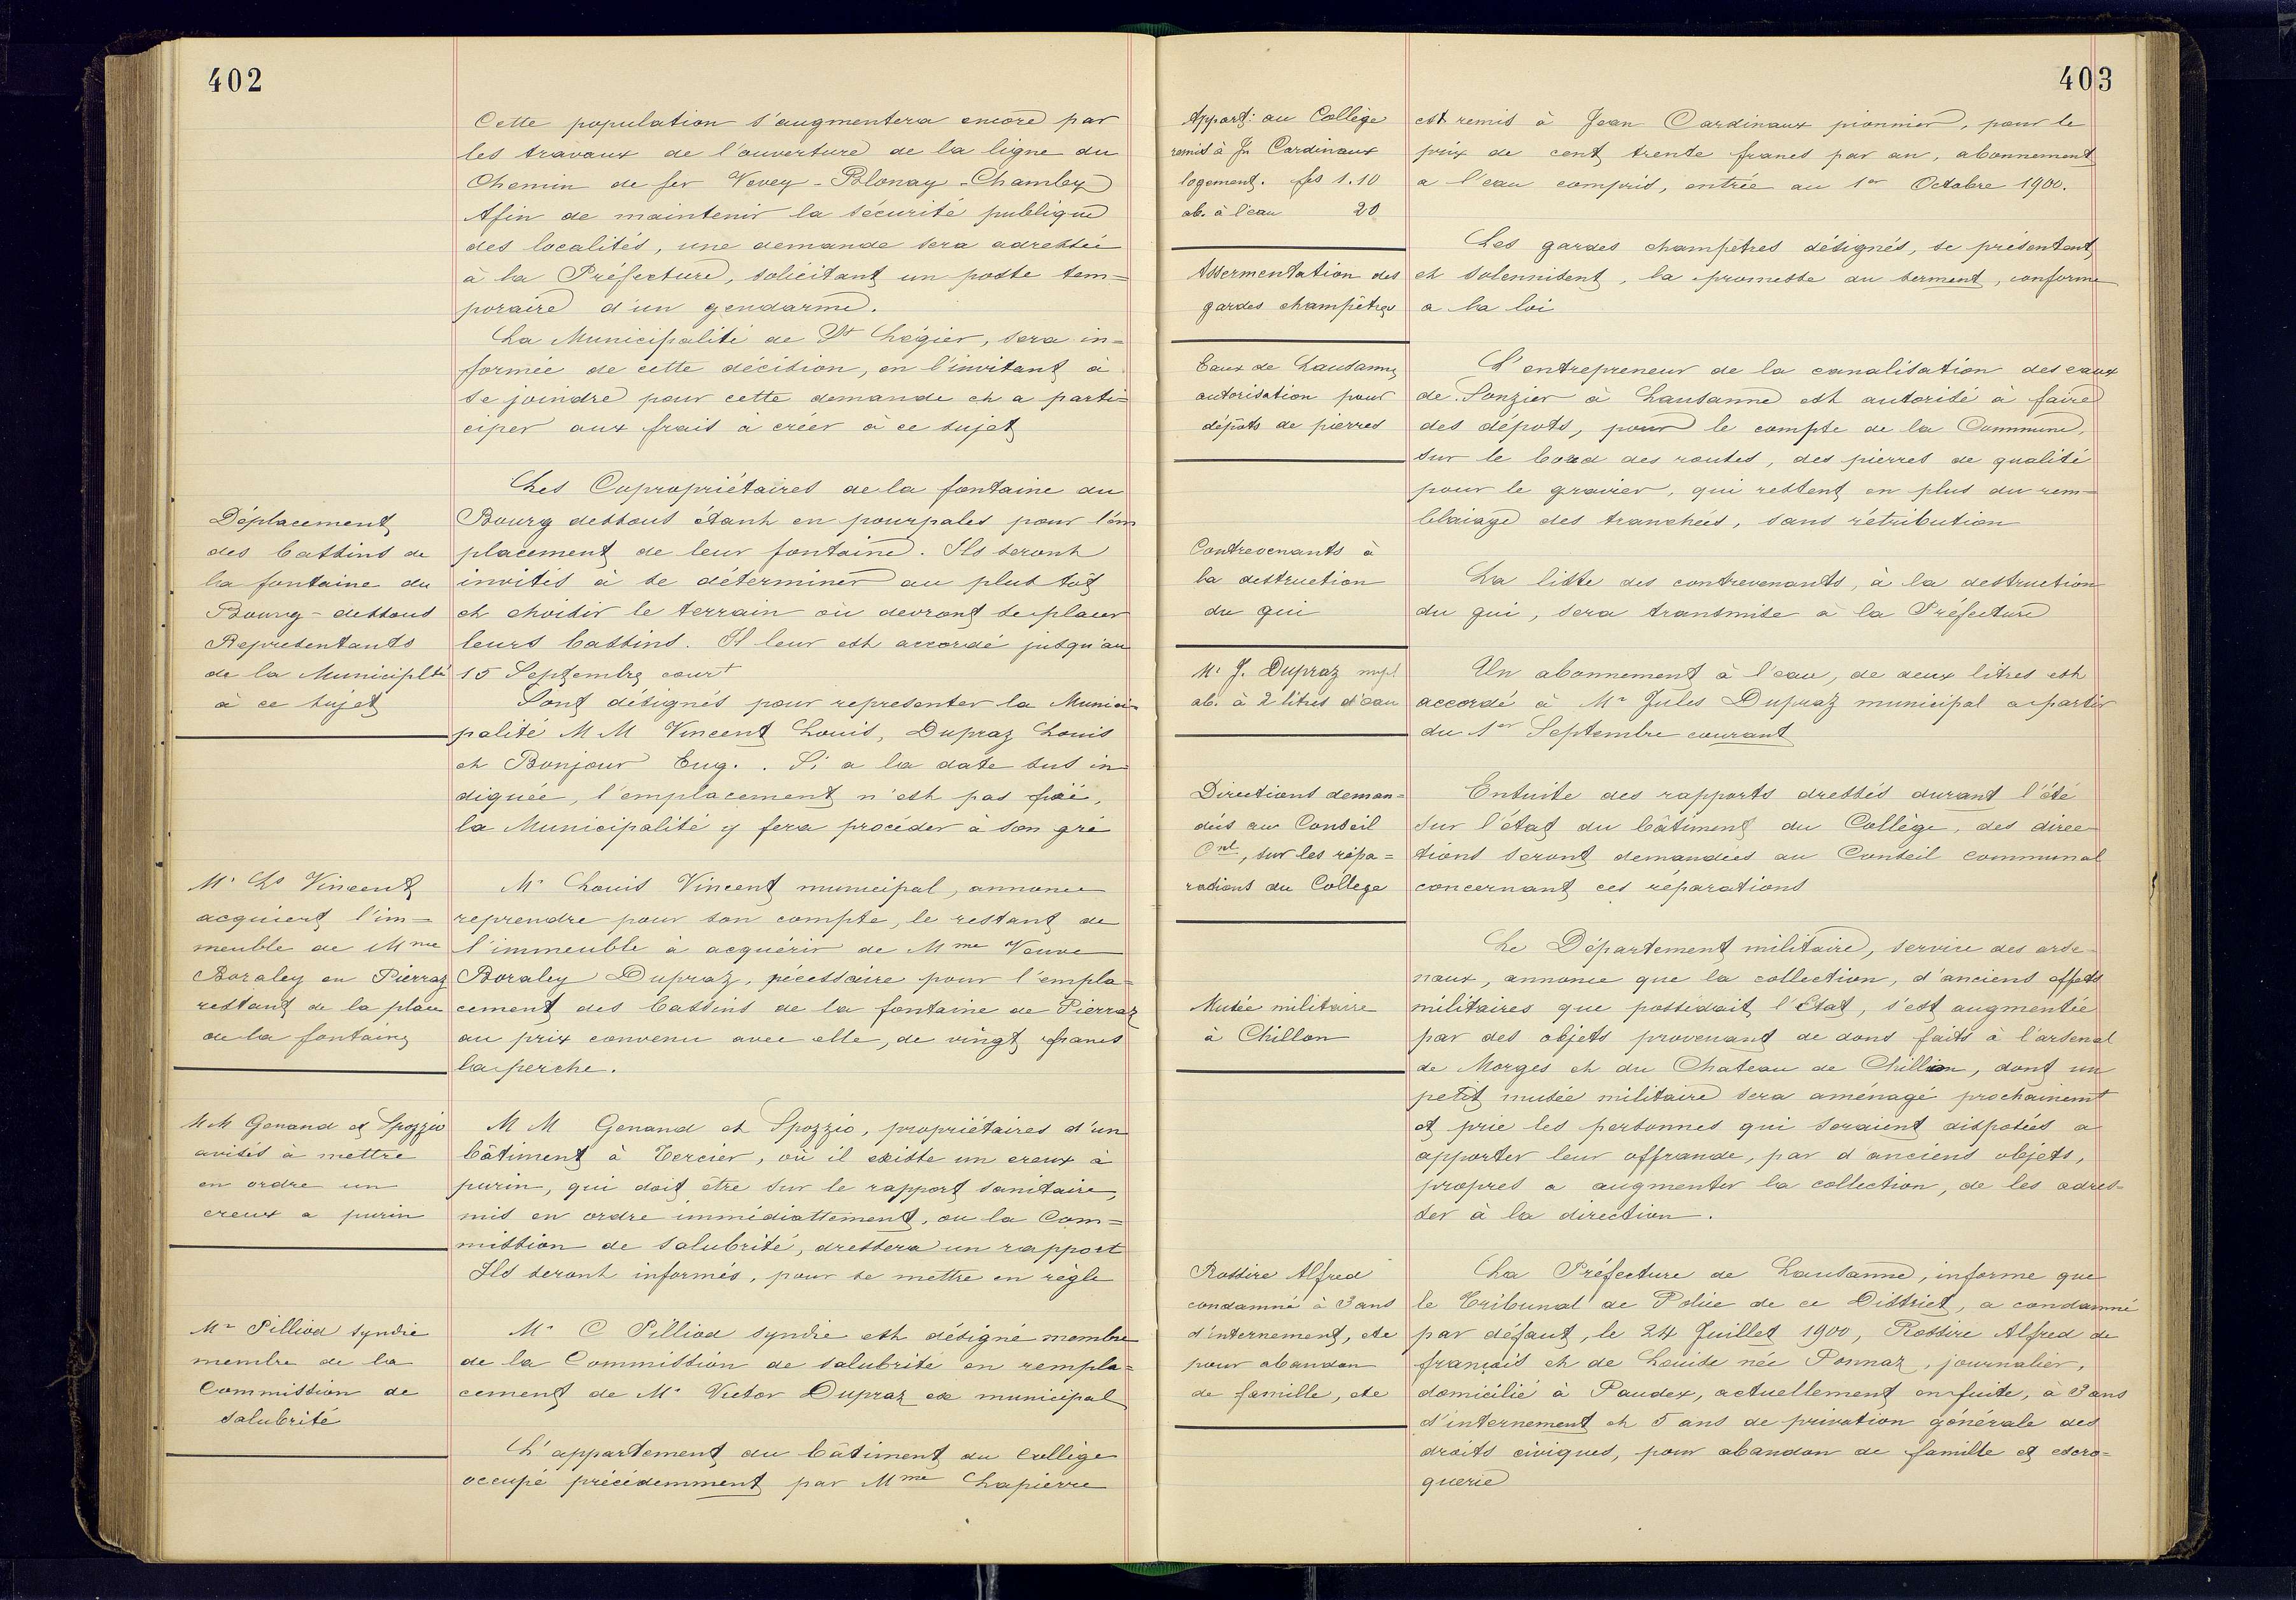 402
Cette population s'augmentera encore par
les travaux de l'ouverture de la ligne du
Chemin de fer Vevey - Blonay - Chamby
Afin de maintenir la sécurité publique
des localités, une demande sera adressée
à la Préfecture, solicitant un poste tem=
poraire d'un gendarme.
La Municipalité de St Légier, sera in=
formée de cette décision, en l'invitant à
se joindre pour cette demande et a parti=
ciper aux frais à créer à ce sujet
Déplacement
des bassins de
la fontaine du
Bourg - dessous
Representants
de la Municiplté
à ce sujet
Les Copropriétaires de la fontaine du
Bourg dessous étant en pourpales pour l'em
placement de leur fontaine. Ils seront
invités à se déterminer au plus tôt
et choisir le terrain où devront se placer
leurs bassins. Il leur est accordé jusqu'au
15 Septembre court
Sont désignés pour representer la Munici=
palité M M Vincent Louis, Dupraz Louis
et Bonjour Eug. . Si a la date sus in=
diquée, l'emplacement n'est pas fixé,
la Municipalité y fera procéder à son gré
Mr Ls Vincent
acquiert l'im=
meuble de Mme
Boraley en Pierraz
restant de la place
de la fontaine
Mr Louis Vincent municipal, annonce
reprendre pour son compte, le restant de
l'immeuble à acquérir de Mme Veuve
Boraley Dupraz, nécessaire pour l'empla=
cement des bassins de la fontaine de Pierraz
au prix convenu avec elle, de vingt francs
la perche.
MM Genand et Spozzio
avisés à mettre
en ordre un
creux a purin
M M Genand et Spozzio, propriétaires d'un
bâtiment à Tercier, où il existe un creux à
purin, qui doit être sur le rapport sanitaire,
mis en ordre immédiattement, ou la Com=
mission de salubrité, dressera un rapport
Ils seront informés, pour se mettre en règle
Mr Pilliod syndic
membre de la
Commission de
salubrité
Mr C Pilliod syndic est désigné membre
de la Commission de salubrité en rempla=
cement de Mr Victor Dupraz ex municipal
L'appartement du bâtiment du collège
occupé précédemment par Mme Lapierre
403
Appart: au Collège
remis à Jn Cardinaux
logement. frs 1.10
ab. à l'eau 20
est remis à Jean Cardinaux pionnier, pour le
prix de cent trente francs par an, abonnement
a l'eau compris, entrée au 1er Octobre 1900.
Assermentation des
gardes champêtres
Les gardes champêtres désignés, se présentent
et solennisent, la promesse du serment, conforme
a la loi
Eaux de Lausanne
autorisation pour
dépôts de pierres
L'entrepreneur de la canalisation des eaux
de Sonzier à Lausanne est autorisé à faire
des dépots, pour le compte de la Commune,
sur le bord des routes, des pierres de qualité
pour le gravier, qui restent en plus du rem=
blaiage des tranchées, sans rétribution
Contrevenants à
la destruction
du gui
La liste des contrevenants, à la destruction
du gui, sera transmise à la Préfecture
Mr J. Dupraz mpl
ab. à 2 litres d'eau
Un abonnement à l'eau, de deux litres est
accordé à Mr Jules Dupraz municipal a partir
du 1er Septembre courant
Directions deman=
dées au Conseil
Cnl, sur les répa=
rations du Collège
Ensuite des rapports dressés durant l'été
sur l'état du bâtiment du Collège, des direc=
tions seront demandées au Conseil communal
concernant ces réparations
Musée militaire
à Chillon
Le Département militaire, service des arse=
naux, annonce que la collection, d'anciens effets
militaires que possédait l'Etat, s'est augmentée
par des objets provenant de dons faits à l'arsenal
de Morges et du Chateau de Chillon, dont un
petit musée militaire sera aménagé prochainemt
et prie les personnes qui seraient disposées a
apporter leur offrande, par d'anciens objets,
propres a augmenter la collection, de les adres=
ser à la direction.
Rossire Alfred
condamné à 3 ans
d'internement, etc
pour abandon
de famille, etc
La Préfecture de Lausanne, informe que
le Tribunal de Police de ce District, a condamné
par défaut, le 24 Juillet 1900, Rossire Alfred de
français et de Louise née Ponnaz, journalier,
domicilié à Paudex, actuellement en fuite, à 3 ans
d'internement et 5 ans de privation générale des
droits civiques, pour abandon de famille et escro=
querie